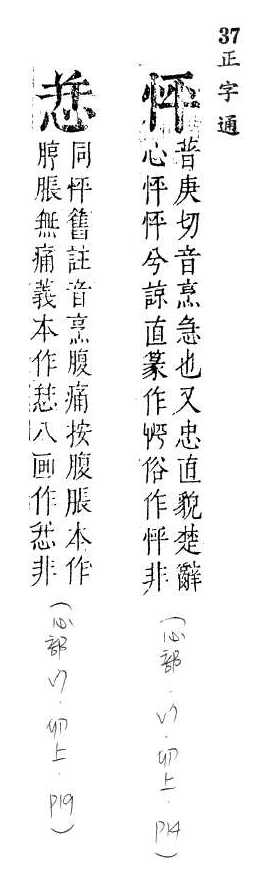 37 正字通
怦
普庚切音烹急也又忠直貌楚辭
心怦怦兮諒直篆作俗作怦非
(心部・卯上・P14)
同怦舊註音烹腹痛按腹脹本作
脝脹無痛義本作八画作非
(心部・卯上・P19)